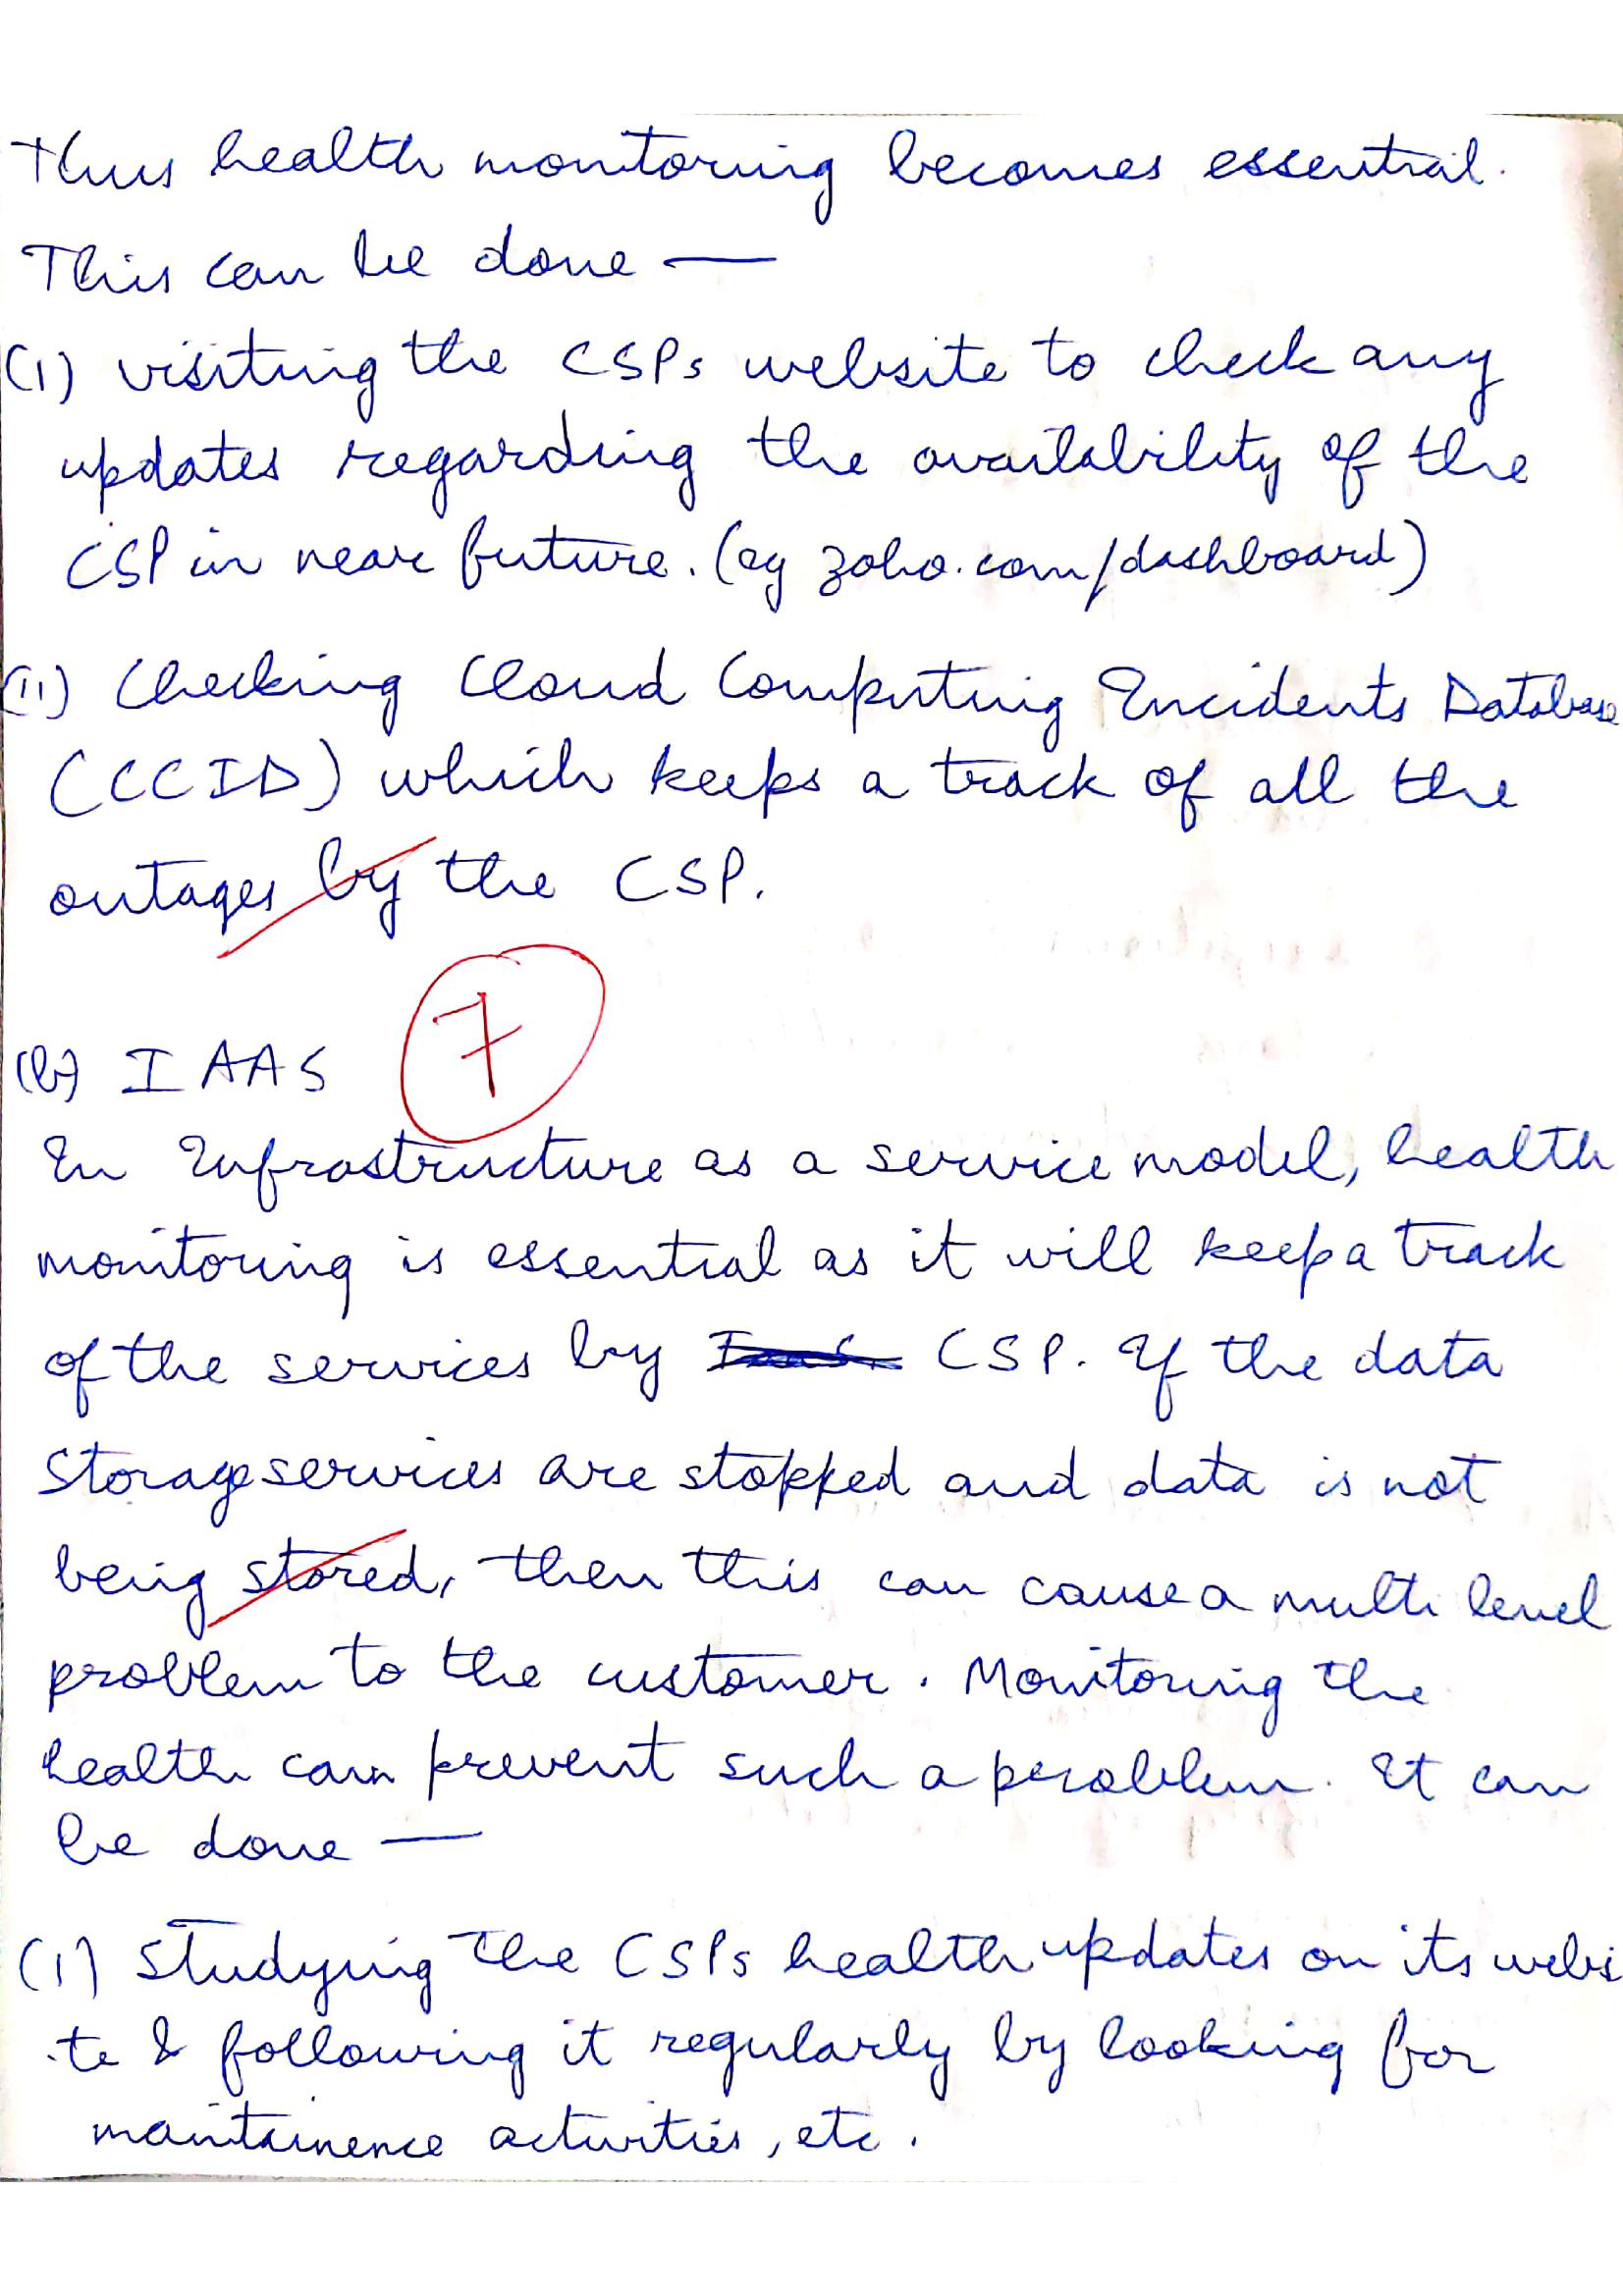 Thus health monitoring becomes essential.
This can be done —
(i) visiting the CSPs website to check any
updates regarding the availability of the
CSP in near future. (eg zoho.com/dashboard)
(ii) Checking Cloud Computing Incidents Database
(CCID) which keeps a track of all the
outages by the CSP.
7
(b) IAAS
In Infrastructure as a service model, health
monitoring is essential as it will keep a track
of the services by CSP. If the data
storage services are stopped and data is not
being stored, then this can cause a multi level
problem to the customer. Monitoring the
health can prevent such a problem. It can
be done —
(i) Studying the CSPs health updates on its websi
te & following it regularly by looking for
maintainence activities, etc.